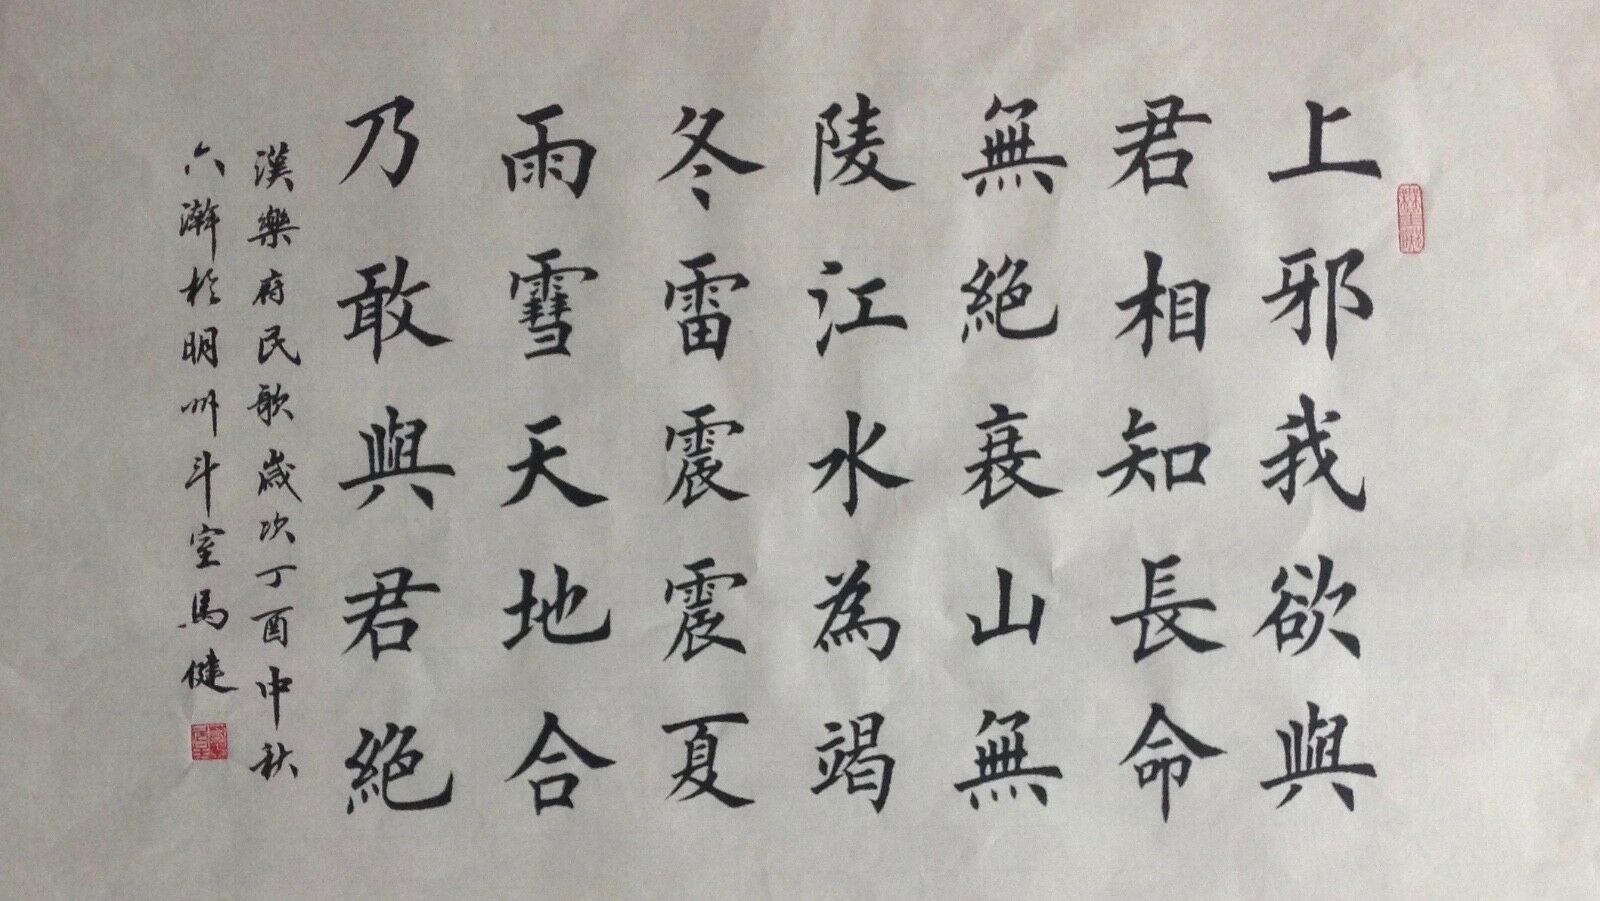 上邪我欲與
君相知長命
無絕衰山無
陵江水為竭
冬雷震震夏
雨雪天地合
乃敢與君絕
漢樂府民歌歲次丁酉中秋
六瀚於明州斗室馬健